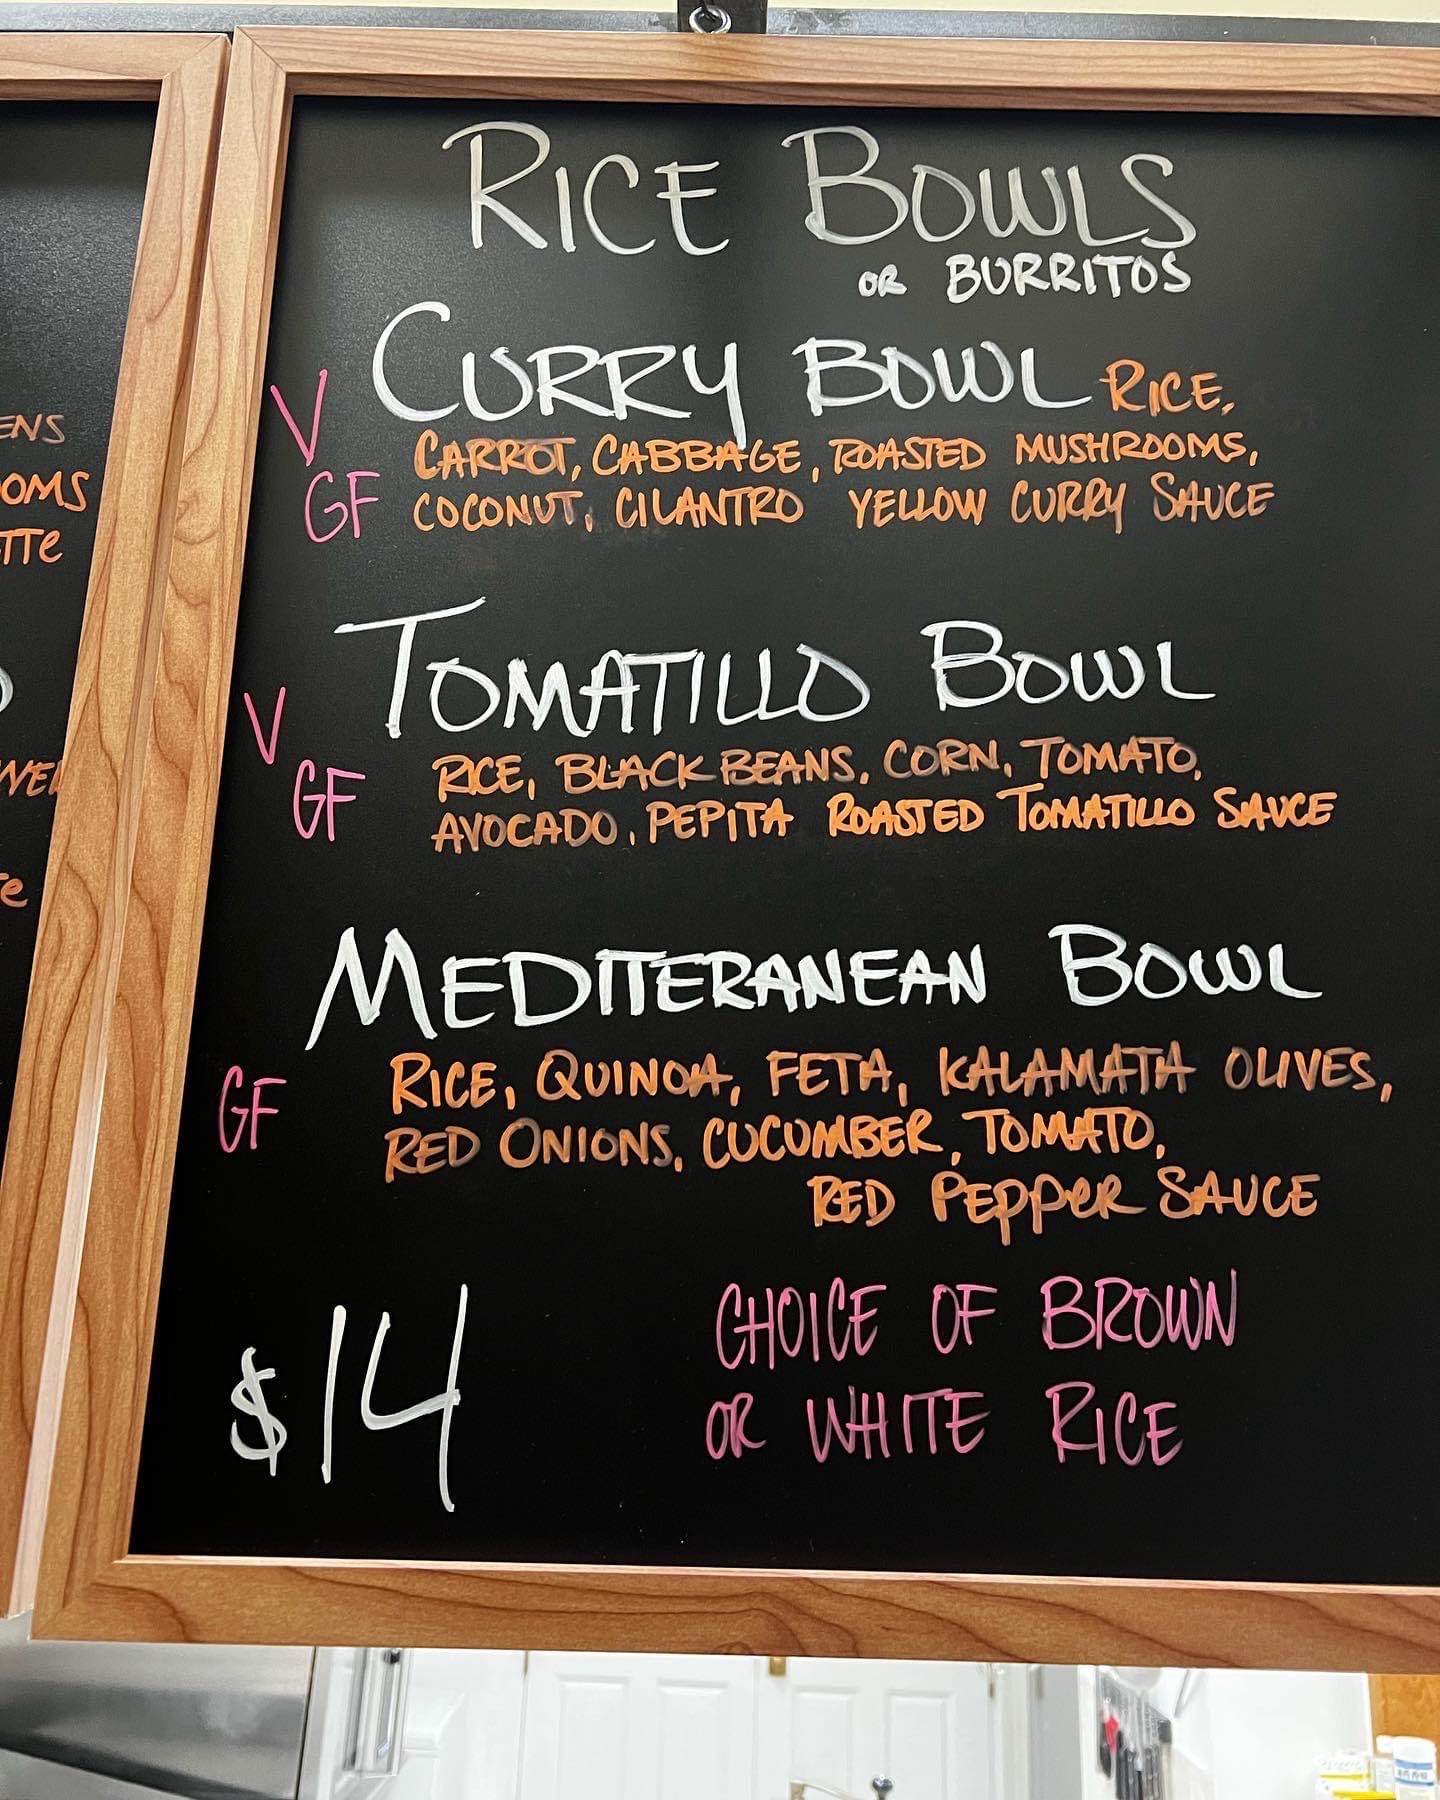 RICE BOWLS
OR BURRITOS
V CURRY BOWL RICE,
CARROT, CABBAGE, ROASTED MUSHROOMS,
GF COCONUT, CILANTRO YELLOW CURRY SAUCE
TOMATILLO BOWL
V
RICE, BLACK BEANS, CORN, TOMATO,
GF AVOCADO, PEPITA ROASTED TOMATILLO SAUCE
MEDITERANEAN BOWL
GF RICE, QUINOA, FETA, KALAMATA OLIVES,
RED ONIONS, CUCUMBER, TOMATO,
RED PEPPER SAUCE
$14
CHOICE OF BROWN
OR WHITE RICE